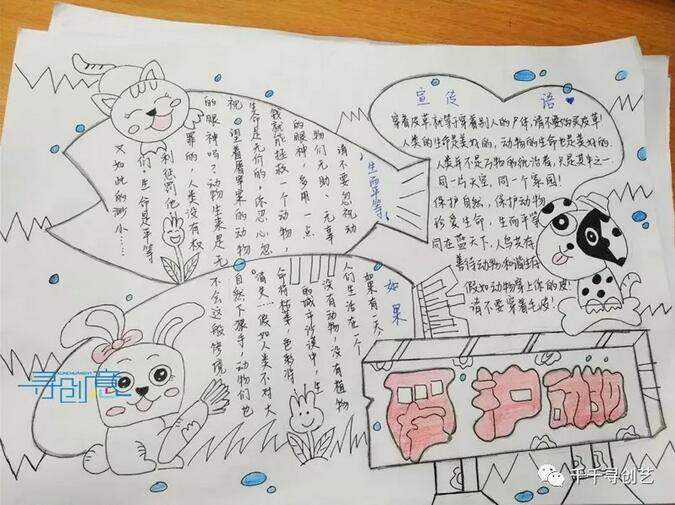 生而平等
请不要忽视动
物们无助、无辜
的眼神,多用一点
我就能拯救一个动物
生命是无价的,你忍心忽
视望着屠宰的动物
的眼神吗?动物生来是无
罪的,人类没有权
利惩罚他
们,生命是平等
又如此的渺小……
宣传语
穿着皮草,就等于穿着别人的尸体,请不要购买皮草!
人类的生命是美好的,动物的生命也是美好的.
人类并不是万物的统治者,只是其中之一.
同一片天空,同一个家园!
保护自然,保护动物
珍爱生命,生而平等
同在蓝天下,人鸟共存
善待动物,和谐生存
假如动物穿上你的皮!
请不要穿着毛皮!
如果
如果有一天,
人们生活在一个
没有动物,没有植物
的城市沙漠中,生
命将枯萎,色彩将
消失…假如人类不对大
自然下狠手,动物们也
不会这般惨境
爱护动物
寻创意
千千寻创艺